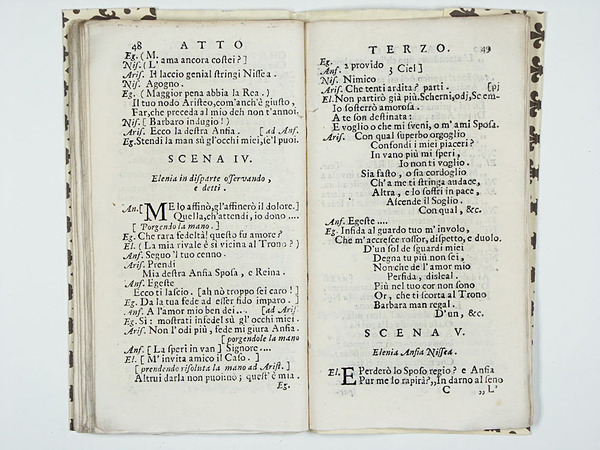 48 ATTO
Eg. ( M.
Nis. ( L' ama ancora costei? ]
Aris. Il laccio genial stringi Nissea.
Nis. Agogno.
Eg. ( Maggior pena abbia la Rea. )
Il tuo nodo Aristeo, com'anch'è giusto,
Far, che preceda al mio deh non t'annoi.
Nis. ( Barbaro indugio! )
Aris. Ecco la destra Anfia. [ ad Anf.
Eg. Stendi la man sù gl'occhi miei, se'l puoi.
SCENA IV.
Elenia in disparte osservando,
e detti.
An. [ ME lo affinò, gl'affinerò il dolore. ]
Quella, ch'attendi, io dono ....
[ Porgendo la mano. ]
Eg. Che rara fedeltà! questo fu amore?
El. ( La mia rivale è sì vicina al Trono? )
Anf. Seguo 'l tuo cenno.
Aris. Prendi
Mia destra Anfia Sposa, e Reina.
Anf. Egeste
Ecco ti lascio. [ ah nò troppo sei caro! ]
Eg. Da la tua fede ad esser fido imparo. ]
Anf. A l'amor mio ben dei... [ ad Aris.
Eg. Sì: mostrati infedel sù gl' occhi miei.
Aris. Non l'odi più, fede mi giura Anfia.
[ porgendole la mano
Anf. [ La speri in van ] Signore....
El. [ M' invita amico il Caso. ]
[ prendendo risoluta la mano ad Arist. ]
Altrui darla non puoi nò; quest' è mia.
Eg.
TERZO. 49
Eg.
Anf. a provido } Ciel ]
Nis. Nimico
Aris. Che tenti ardita? parti. [ pj
El. Non partirò già più. Scherni, odj, Scem-
Io sosterrò amorosa.
A te son destinata:
E voglio o che mi sveni, o m' ami Sposa.
Aris. Con qual superbo orgoglio
Confondi i miei piaceri?
In vano più mi speri,
Io non ti voglio.
Sia fasto, o sia cordoglio
Ch'a me ti stringa audace,
Altra, e lo soffri in pace,
Ascende il Soglio.
Con qual, &c.
Anf. Egeste ....
Eg. Infida al guardo tuo m' involo,
Che m'accresce rossor, dispetto, e duolo.
D'un sol de sguardi miei
Degna tu più non sei,
Non che de l' amor mio
Perfida, disleal.
Più nel tuo cor non sono
Or, che ti scorta al Trono
Barbara man regal.
D'un, &c.
SCENA V.
Elenia Anfia Nissea.
El. E Perderò lo Sposo regio? e Anfia
Pur me lo rapirà? ,, In darno al seno
C ,, L'